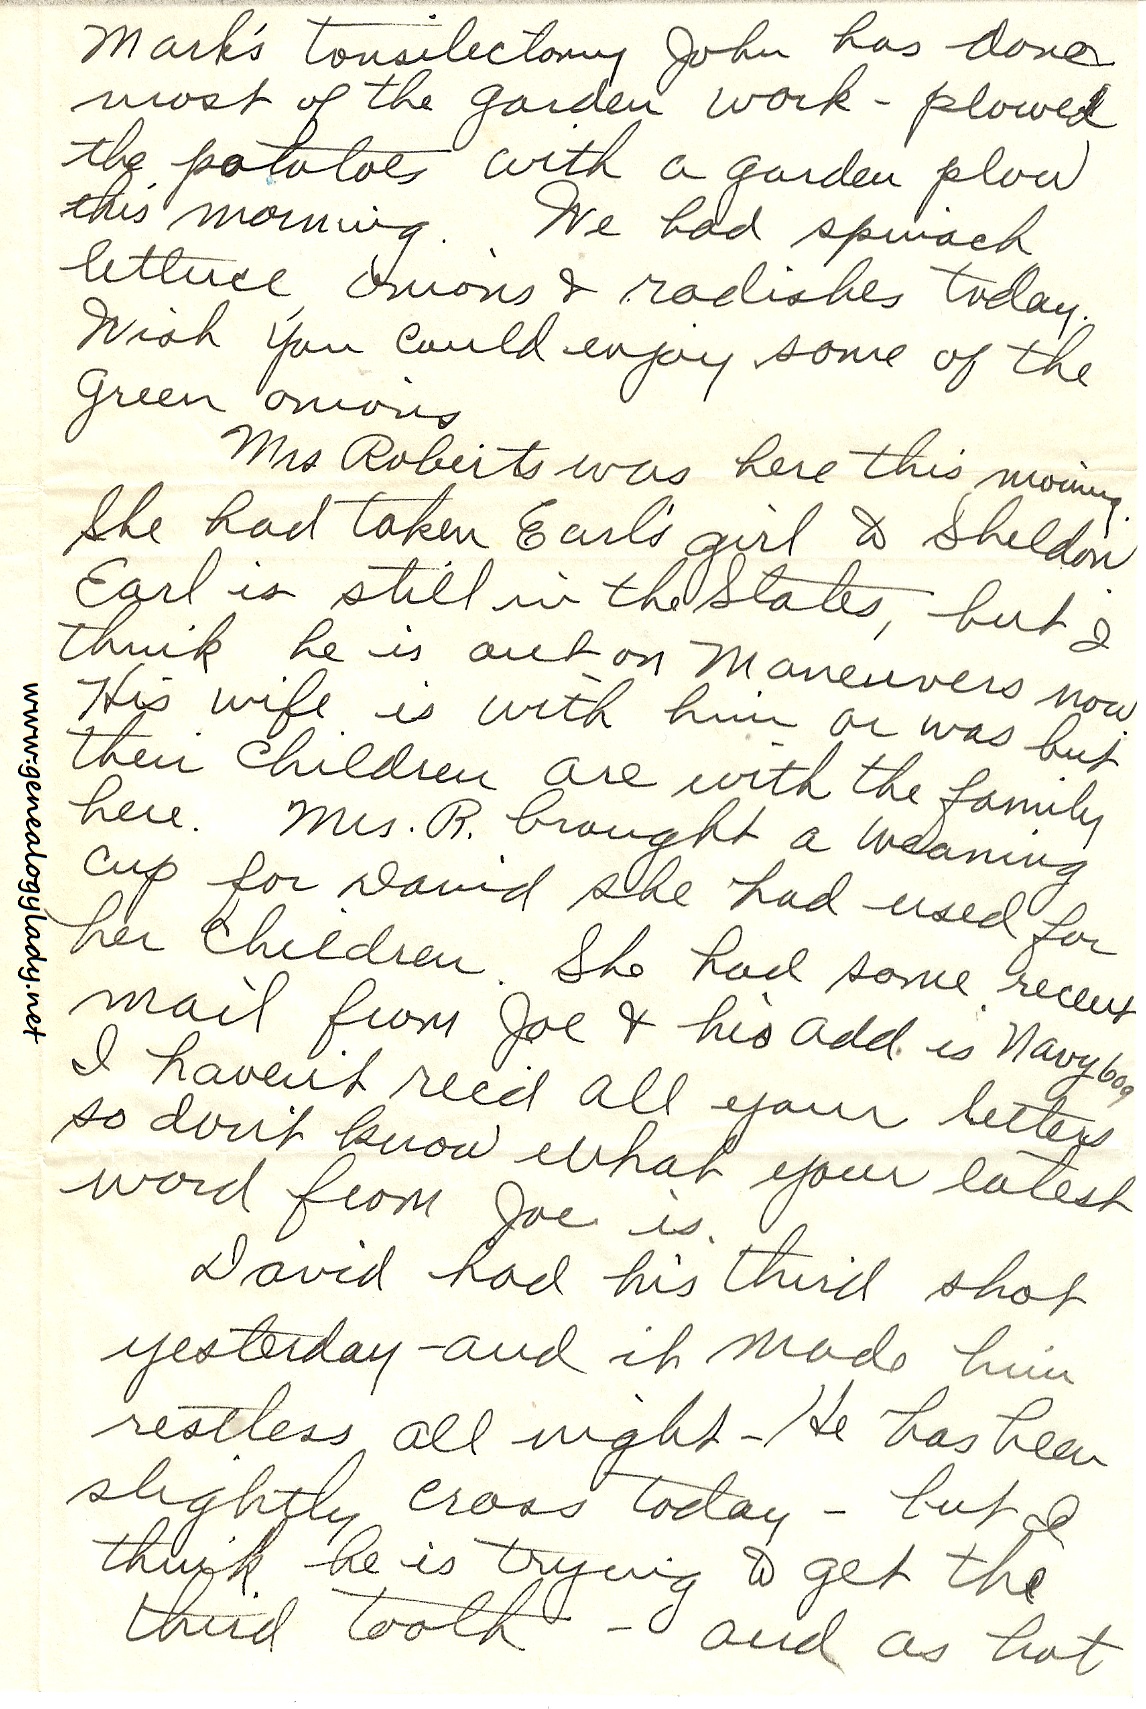 Mark's tonsilectomy John has done
most of the garden work - plowed
the potatoes with a garden plow
this morning. We had spinach
lettuce, onions & radishes today.
Wish you could enjoy some of the
green onions
Mrs Roberts was here this morning.
She had taken Earl's girl to Sheldon
Earl is still in the States, but I
think he is out on Maneuvers now
His wife is with him or was but
their children are with the family
here. Mrs. R. brought a weaning
cup for David she had used for
her children. She had some recent
mail from Joe & his add. is Navy 609
I haven't rec'd all your letters
so don't know what your latest
word from Joe is.
David had his third shot
yesterday - and it made him
restless all night - He has been
slightly cross today - but I
think he is trying to get the
third tooth - and as hot
www.genealogylady.net